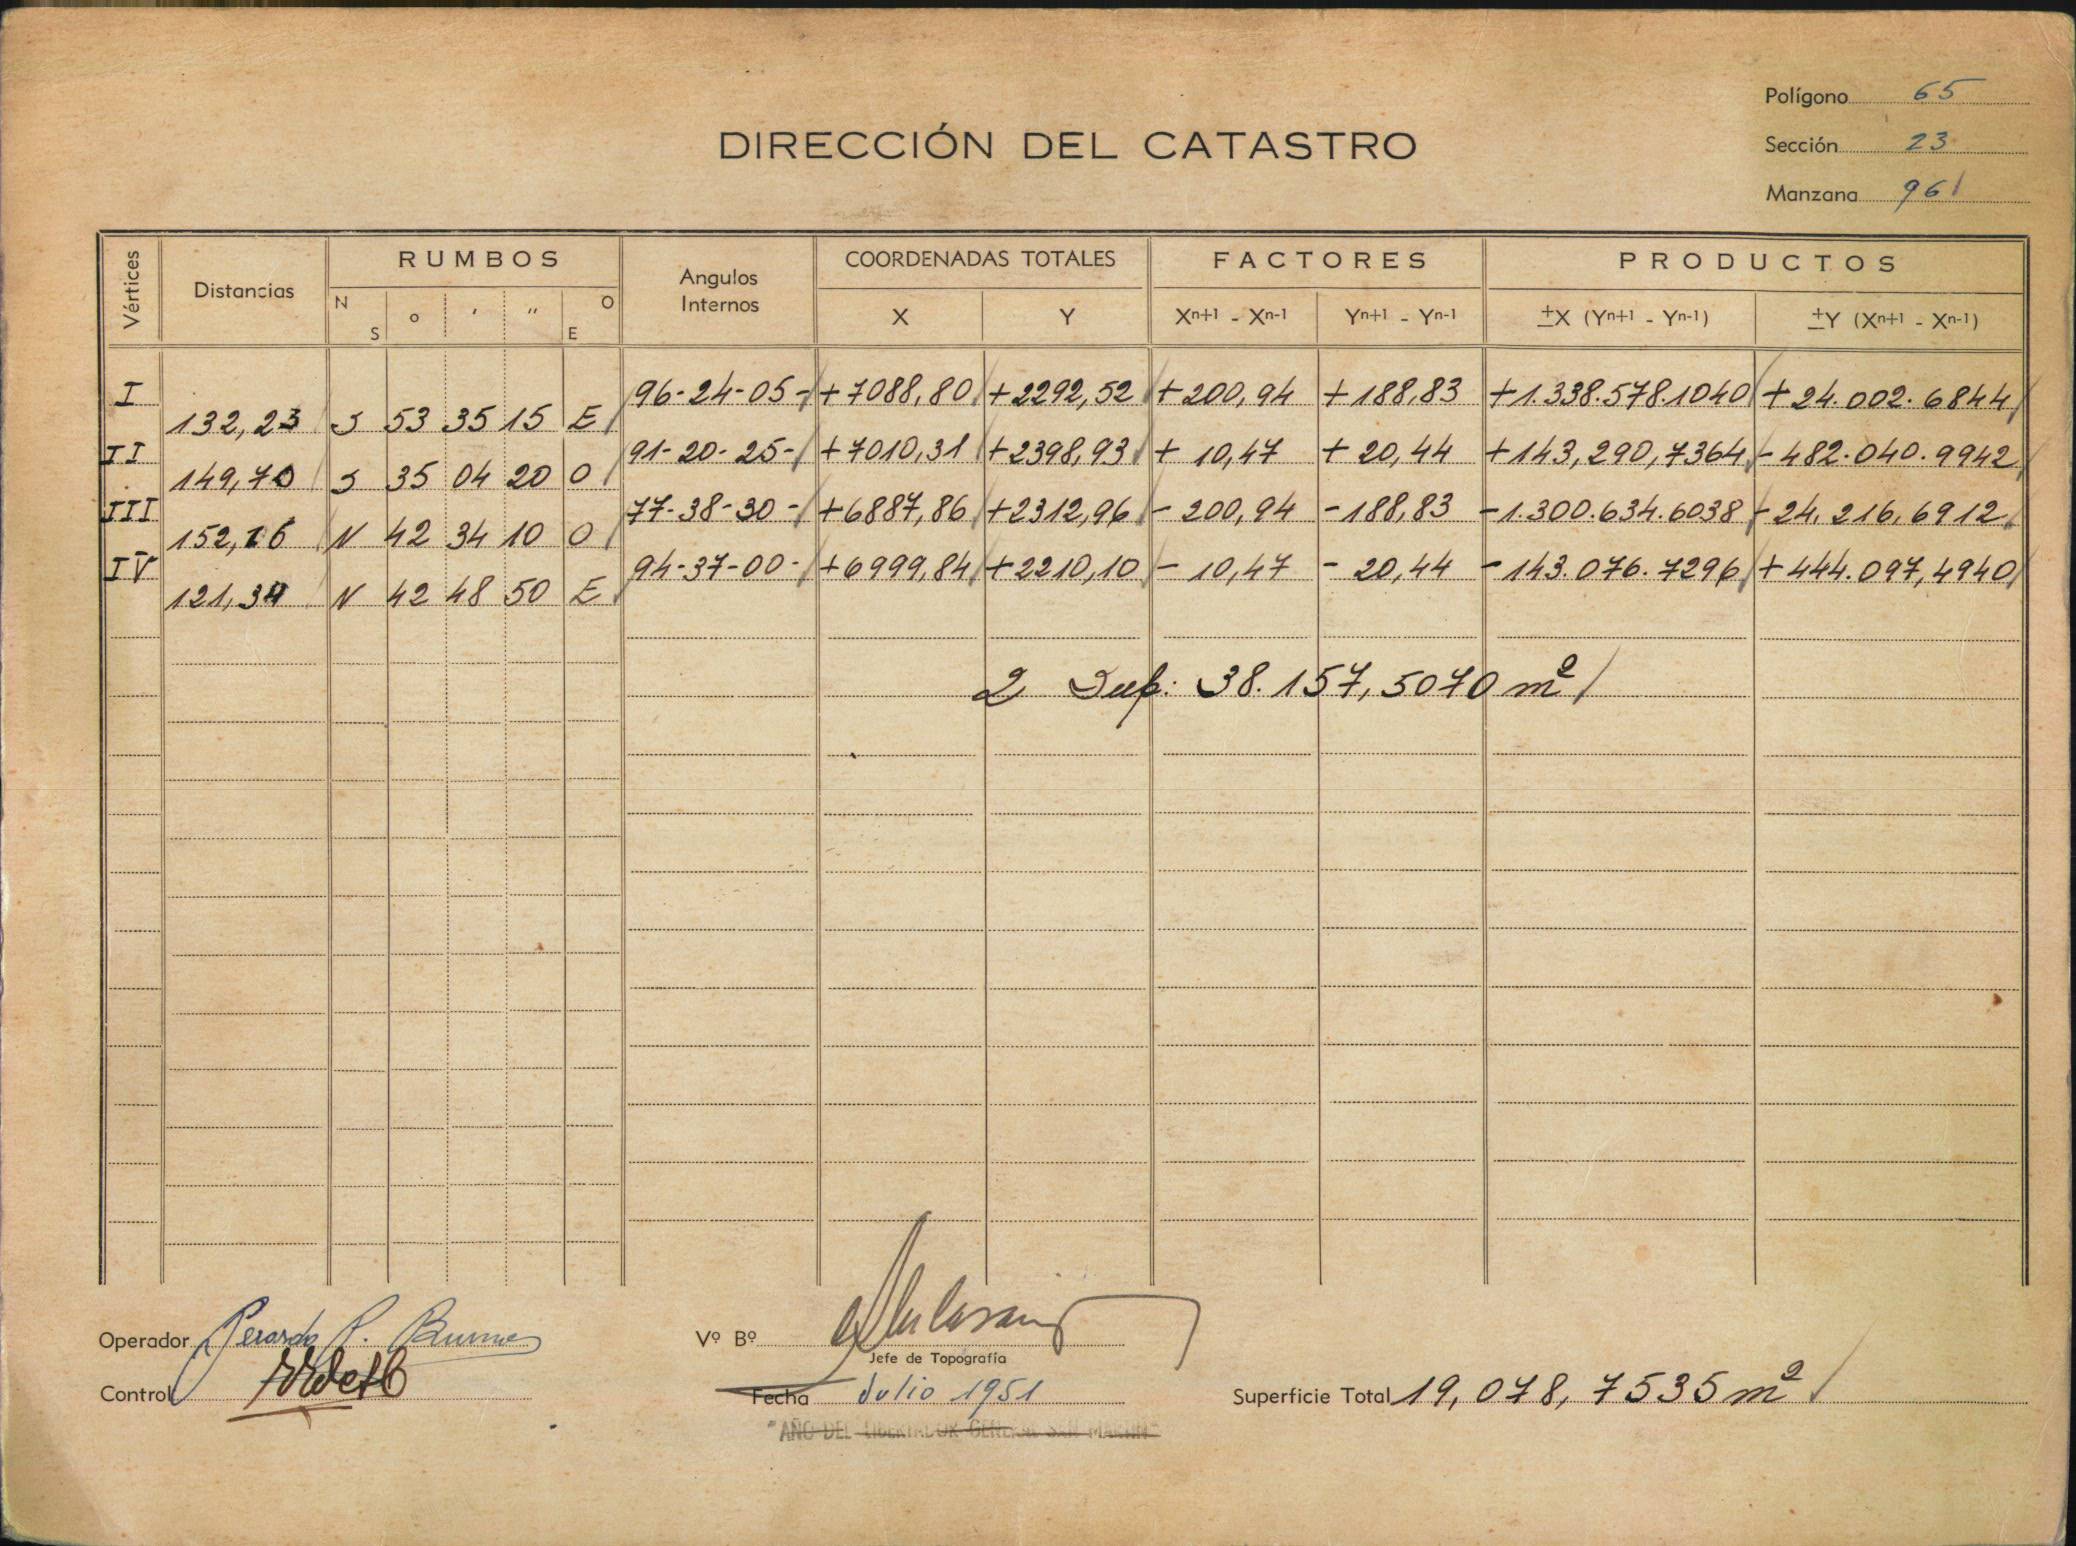 Polígono 65
DIRECCIÓN DEL CATASTRO
Sección 23
Manzana 961
Vértices Distancias RUMBOS Angulos Internos COORDENADAS TOTALES FACTORES PRODUCTOS
N S o ' " O E X Y Xn+1 - Xn-1 Yn+1 - Yn-1 ±X (Yn+1 - Yn-1) ±Y (Xn+1 - Xn-1)
I 96-24-05- +7088,80 +2292,52 +200,94 +188,83 +1.338.578.1040 +24.002.6844
132,23 S 53 35 15 E
II 91-20-25- +7010,31 +2398,93 +10,47 +20,44 +143,290,7364 -482.040.9942
149,70 S 35 04 20 O
III 77-38-30- +6887,86 +2312,96 -200,94 -188,83 -1.300.634.6038 -24.216,6912
152,16 N 42 34 10 O
IV 94-37-00- +6999,84 +2210,10 -10,47 -20,44 -143.076.7296 +444.097,4940
121,34 N 42 48 50 E
2 Sup: 38.157,5070 m²
Operador Gerardo
Vº Bº
Jefe de Topografía
Control
Fecha Julio 1951
Superficie Total 19,078,7535 m²
"AÑO DEL LIBERTADOR GENERAL SAN MARTIN"